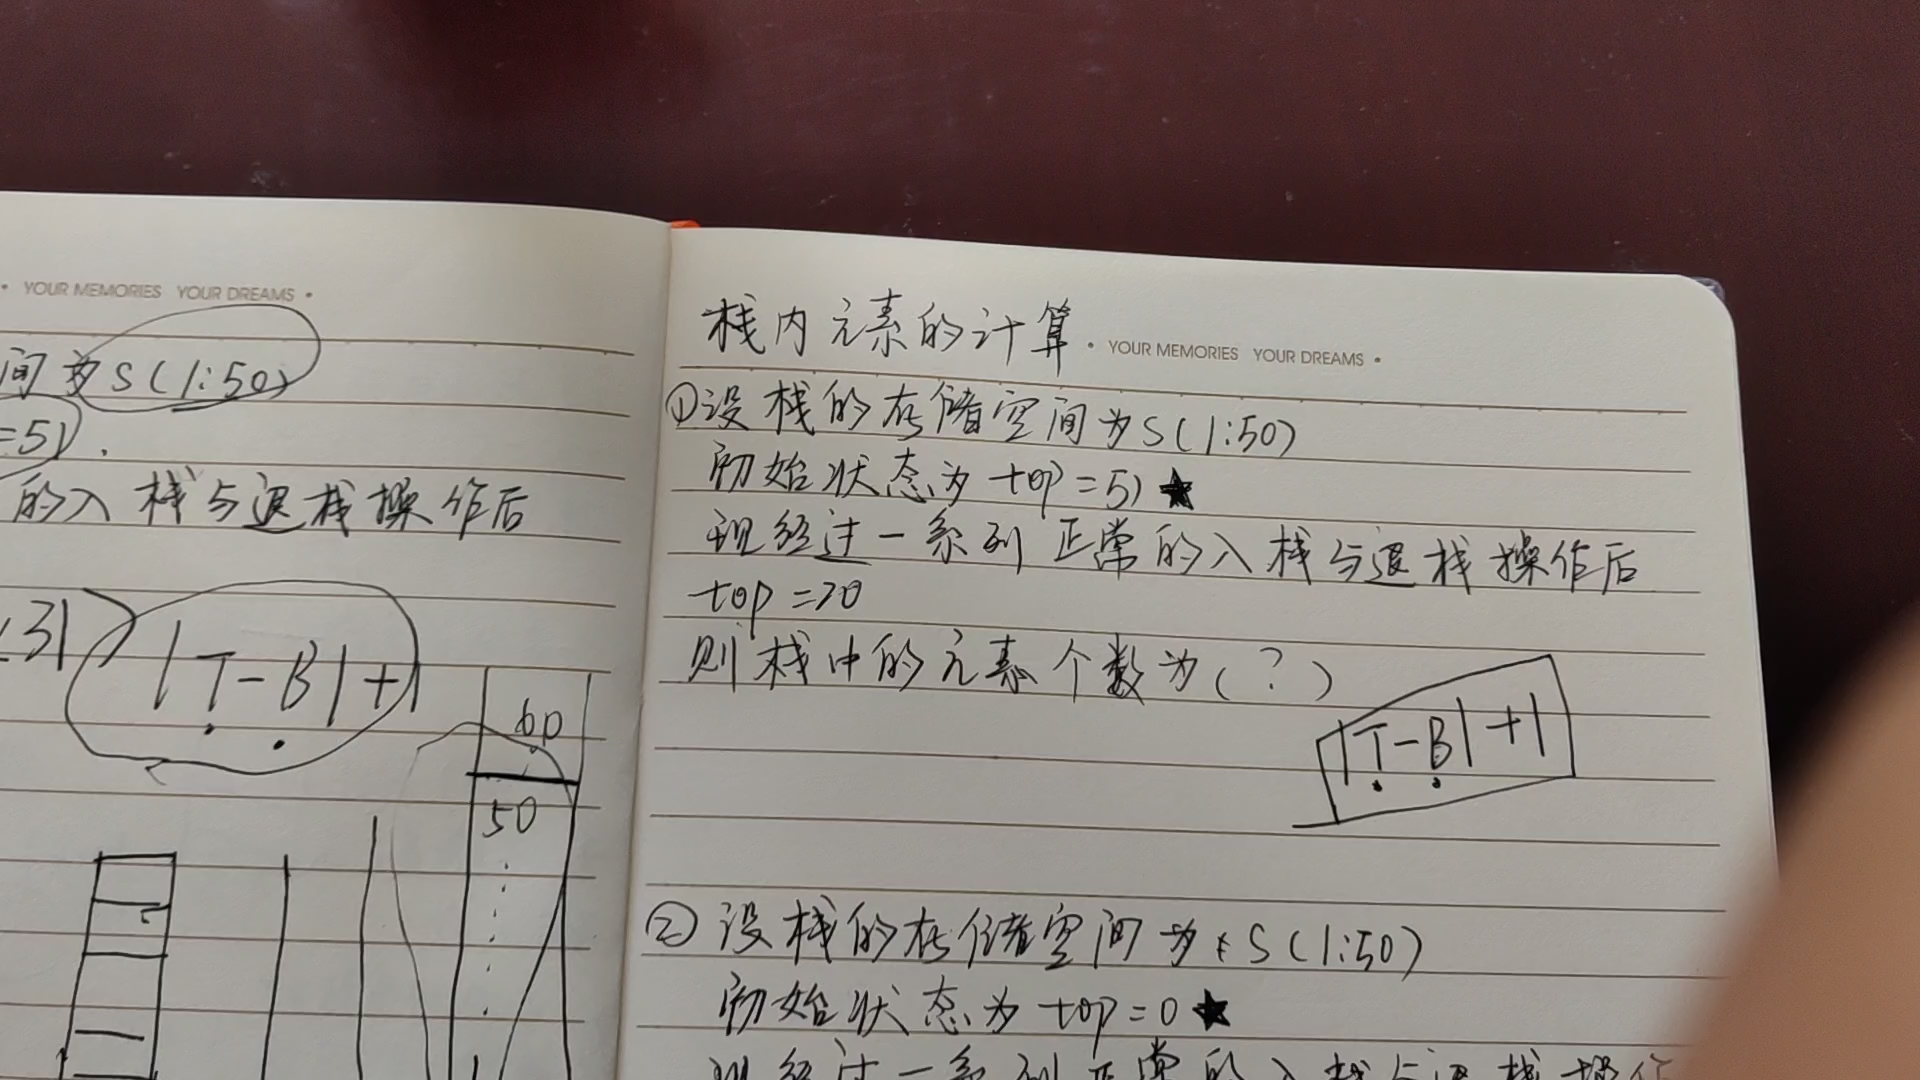 YOUR MEMORIES YOUR DREAMS
间为S(1:50)
=51).
的入栈与退栈操作后
|T-B|+1
60
50
栈内元素的计算
YOUR MEMORIES YOUR DREAMS
①设栈的存储空间为S(1:50)
初始状态为top=51★
现经过一系列正常的入栈与退栈操作后
top=20
则栈中的元素个数为(?)
|T-B|+1
②设栈的存储空间为S(1:50)
初始状态为top=0★
现经过一系列正常的入栈与退栈操作